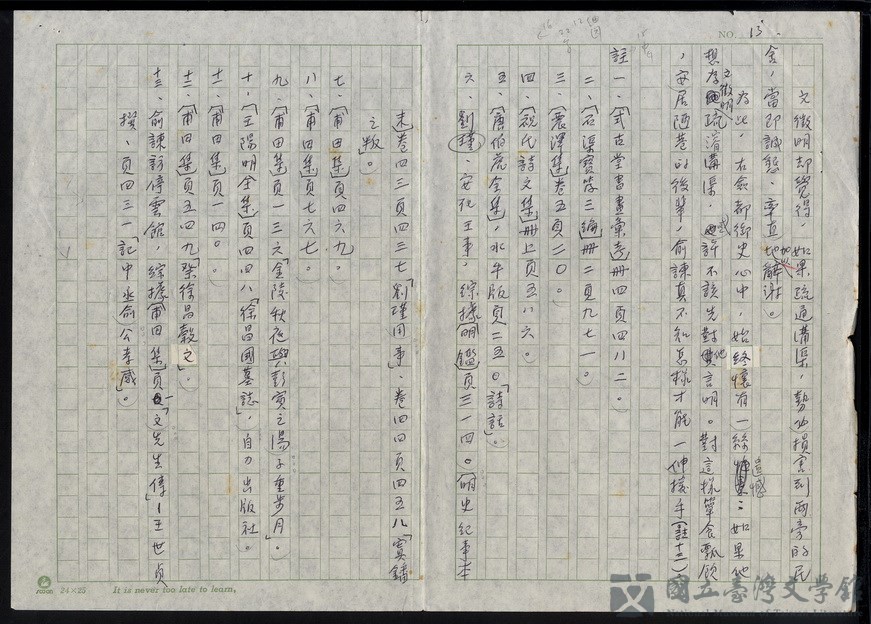 NO. 13.
文徵明却覺得，如果疏通溝渠，勢必損害到兩旁的民
舍，當即誠懇、率直地加以辭謝。
為此，右僉都御史心中，始終懷有一絲遺憾；如果他
想為文徵明疏濬溝渠，或許不該先對他言明。對這樣簞食瓢飲
，安居陋巷的後輩，俞諫真不知怎樣才能一伸援手（註十三）
註一、「式古堂書畫彙考」冊四頁四八二。
二、「石渠寶笈三編」冊二頁九七一。
三、「震澤集」卷五頁二〇。
四、「祝氏詩文集」冊上頁五八六。
五、「唐伯虎全集」，水牛版頁二五〇「詩話」。
六、劉瑾、安化王事，綜據「明鑑」頁三一四。「明史紀事本
末」卷四三頁四三七「劉瑾用事」、卷四四頁四五八「寘鐇
之叛」。
七、「甫田集」頁四六九。
八、「甫田集」頁七六七。
九、「甫田集」頁一三六「金陵秋夜與彭寅之湯子重步月」。
十、「王陽明全集」頁四四八「徐昌國墓誌」，自力出版社。
十一、「甫田集」頁一四〇。
十二、「甫田集」頁五四九「祭徐昌穀文」。
十三、俞諫訪停雲館，綜據「甫田集」頁一「文先生傳」—王世貞
撰、頁四三一「記中丞俞公孝感」。
24×25
It is never too late to learn.
國立臺灣文學館